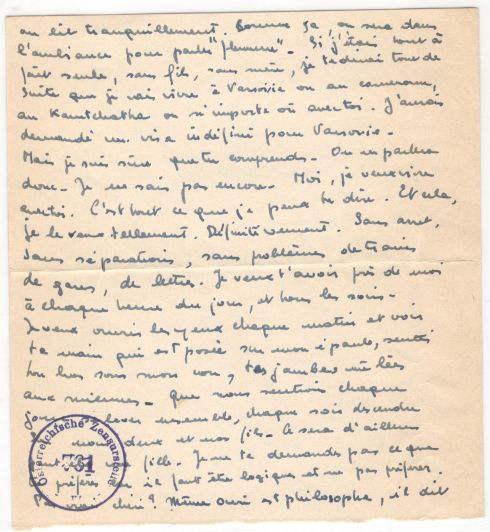 au lit tranquillement. Comme ça, on sera dans
l'ambiance pour parler "femme". Si j'étais tout à
fait seule, sans fils, sans mère, je te dirais tout de
suite que je vais vivre à Varsovie ou au cameroun,
au Kamtchatka ou n'importe où avec toi. J'aurais
demandé un visa indéfini pour Varsovie.
Mais je suis sûre que tu comprends. On en parlera
donc. Je ne sais pas encore. Moi, je veux vivre
avec toi. C'est tout ce que je peux te dire. Et cela,
je le veux tellement. Définitivement. Sans arret,
sans séparations, sans problèmes de trains
de gares, de lettres. Je veux t'avoir près de moi
à chaque heure du jour, et tous les soirs.
Je veux ouvrir les yeux chaque matin et voir
ta main qui est posée sur mon épaule, sentir
ton bras sous mon cou, tes jambes mêlées
aux miennes. Que nous sentions chaque
jour lever ensemble, chaque soir descendre
nous deux et nos fils. Ce sera d'ailleurs
fille. Je ne te demande pas ce que
préfères il faut être logique et ne pas préférer.
vrai chéri? Même est philosophe, il dit
Österreichische Zensurstelle
731